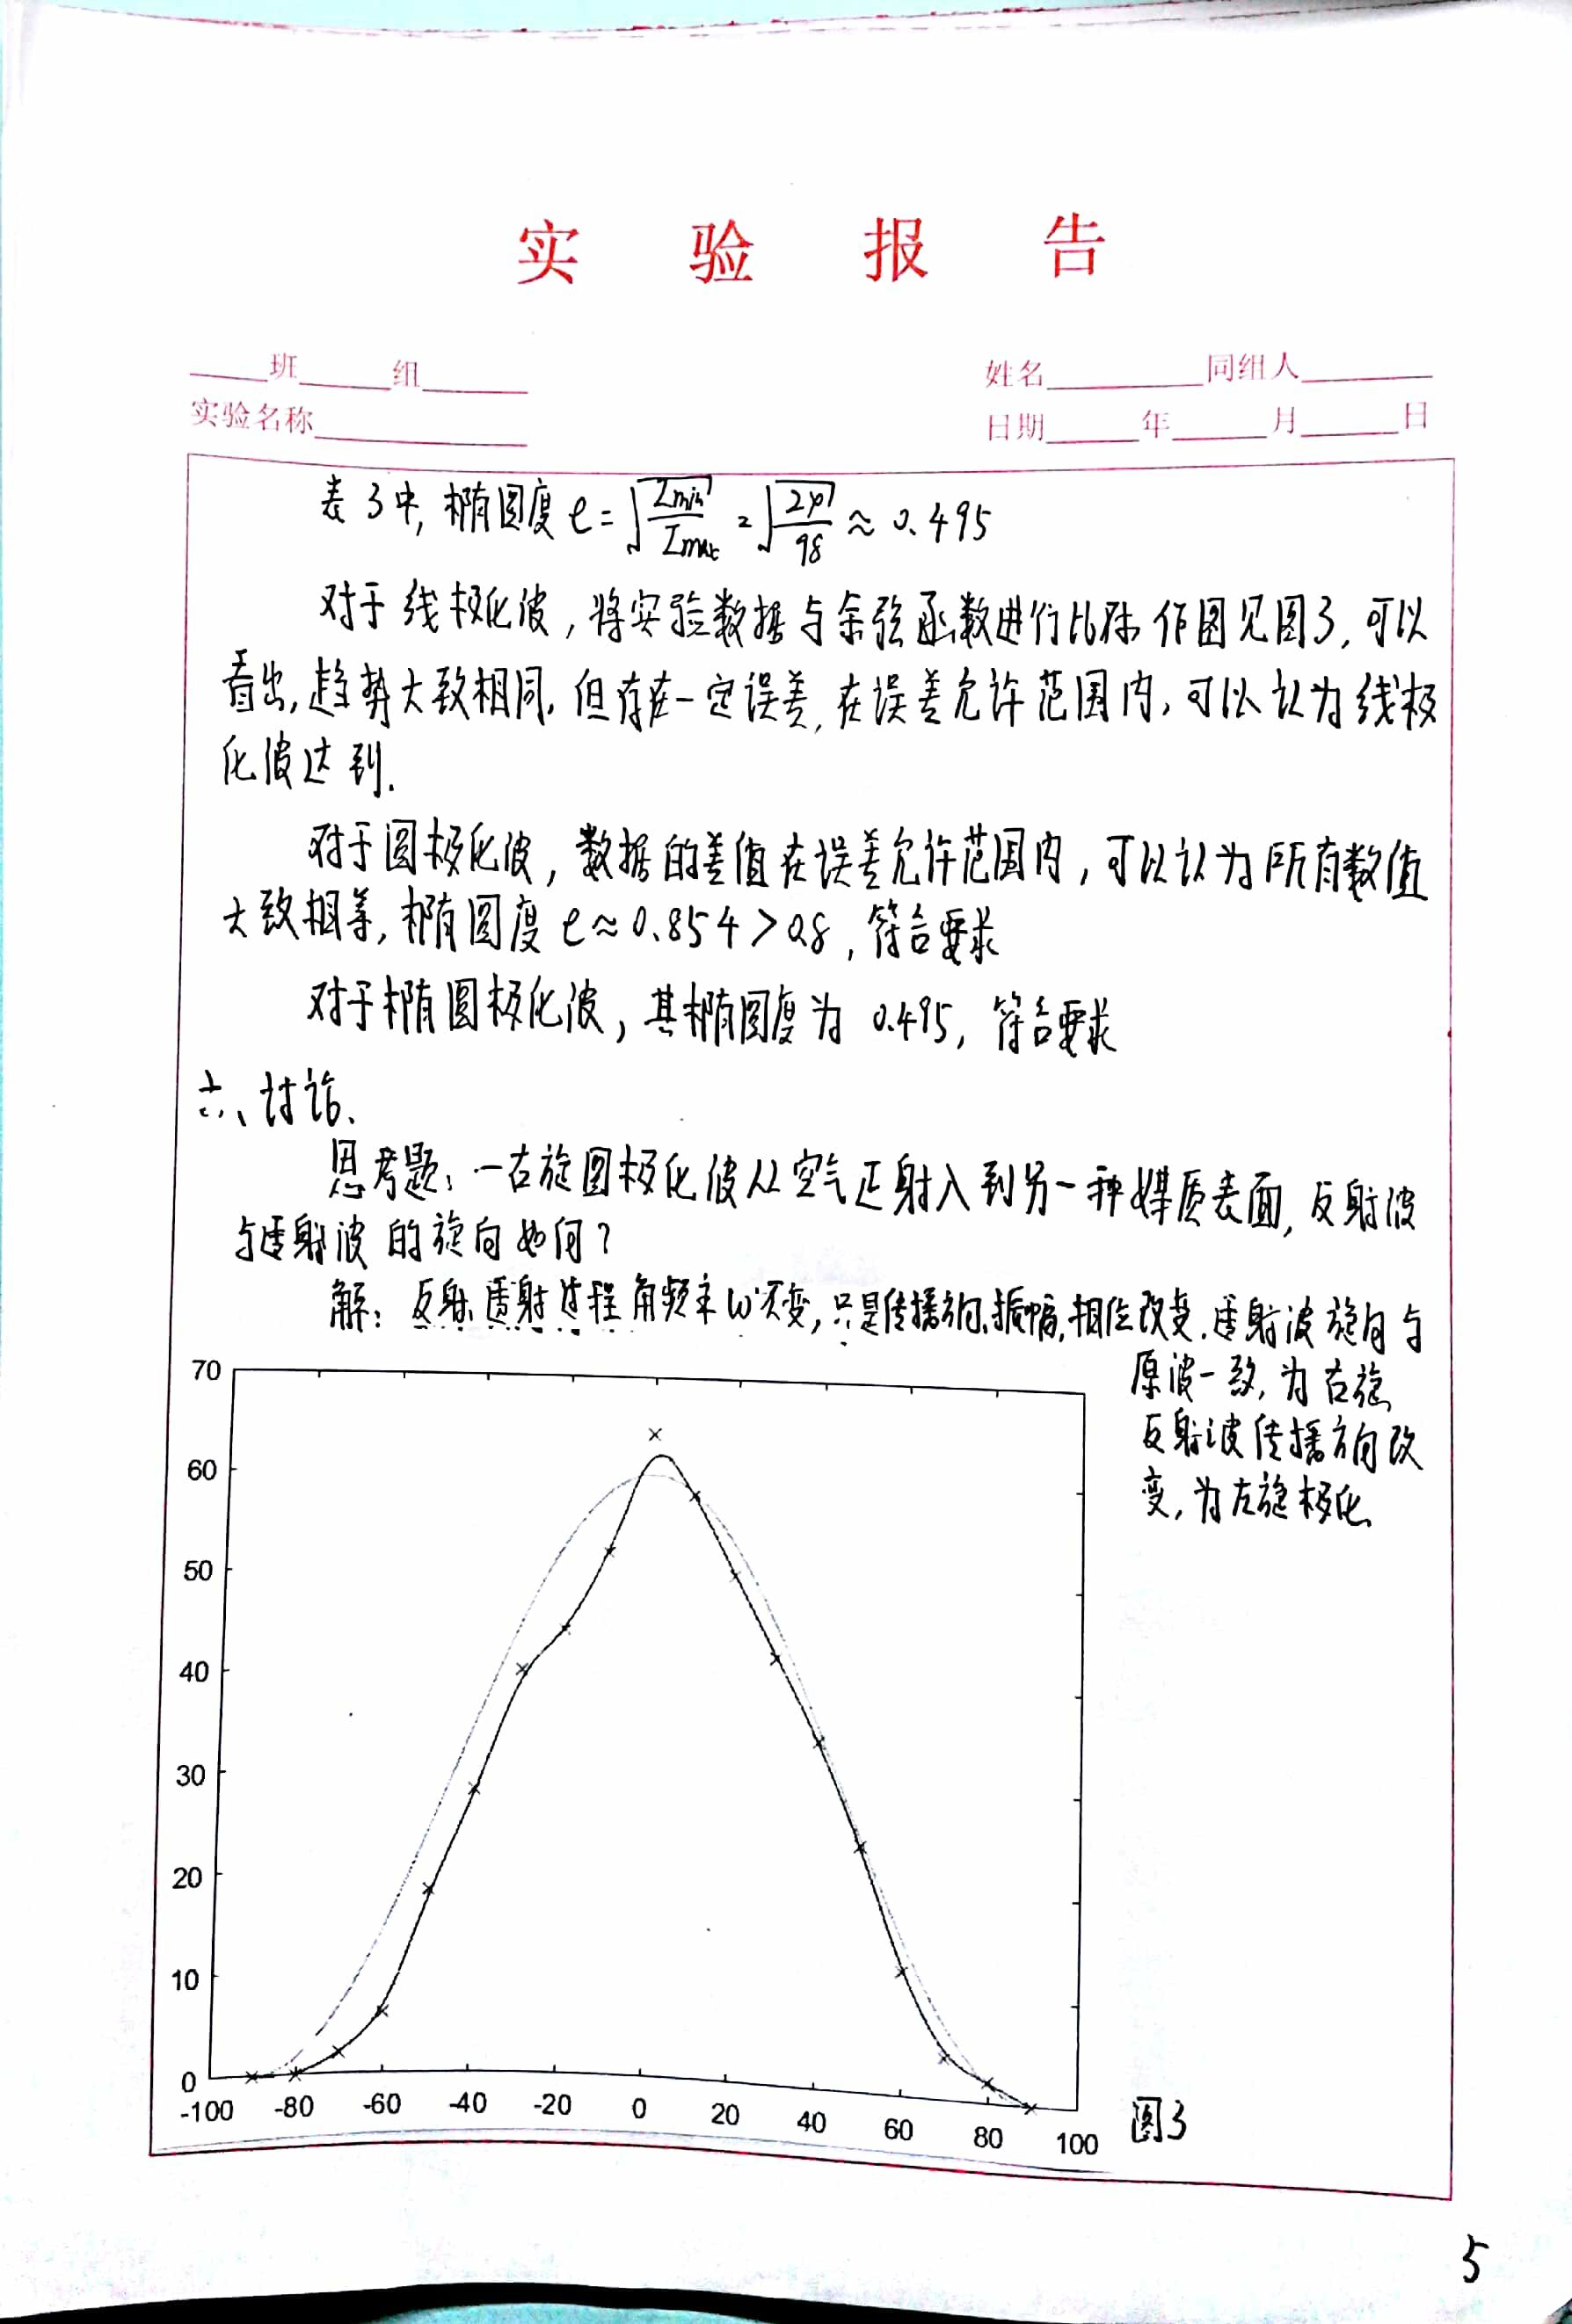 实 验 报 告
____班____组____ 姓名____同组人____
实验名称____ 日期____年____月____日
表3中,椭圆度 e=√(Imin/Imax)=√(24/98)≈0.495
对于线极化波,将实验数据与余弦函数进行比对,作图见图3,可以
看出,趋势大致相同,但存在一定误差,在误差允许范围内,可以认为线极
化波达到.
对于圆极化波,数据的差值在误差允许范围内,可以认为所有数值
大致相等,椭圆度 e≈0.854>0.8,符合要求
对于椭圆极化波,其椭圆度为 0.495,符合要求
六、讨论、
思考题:一右旋圆极化波从空气正射入到另一种媒质表面,反射波
与透射波的旋向如何?
解:反射、透射过程角频率ω不变,只是传播方向、振幅,相位改变.透射波旋向与
原波一致,为右旋,
反射波传播方向改
变,为左旋极化.
70
60
50
40
30
20
10
0
-100 -80 -60 -40 -20 0 20 40 60 80 100
图3
5